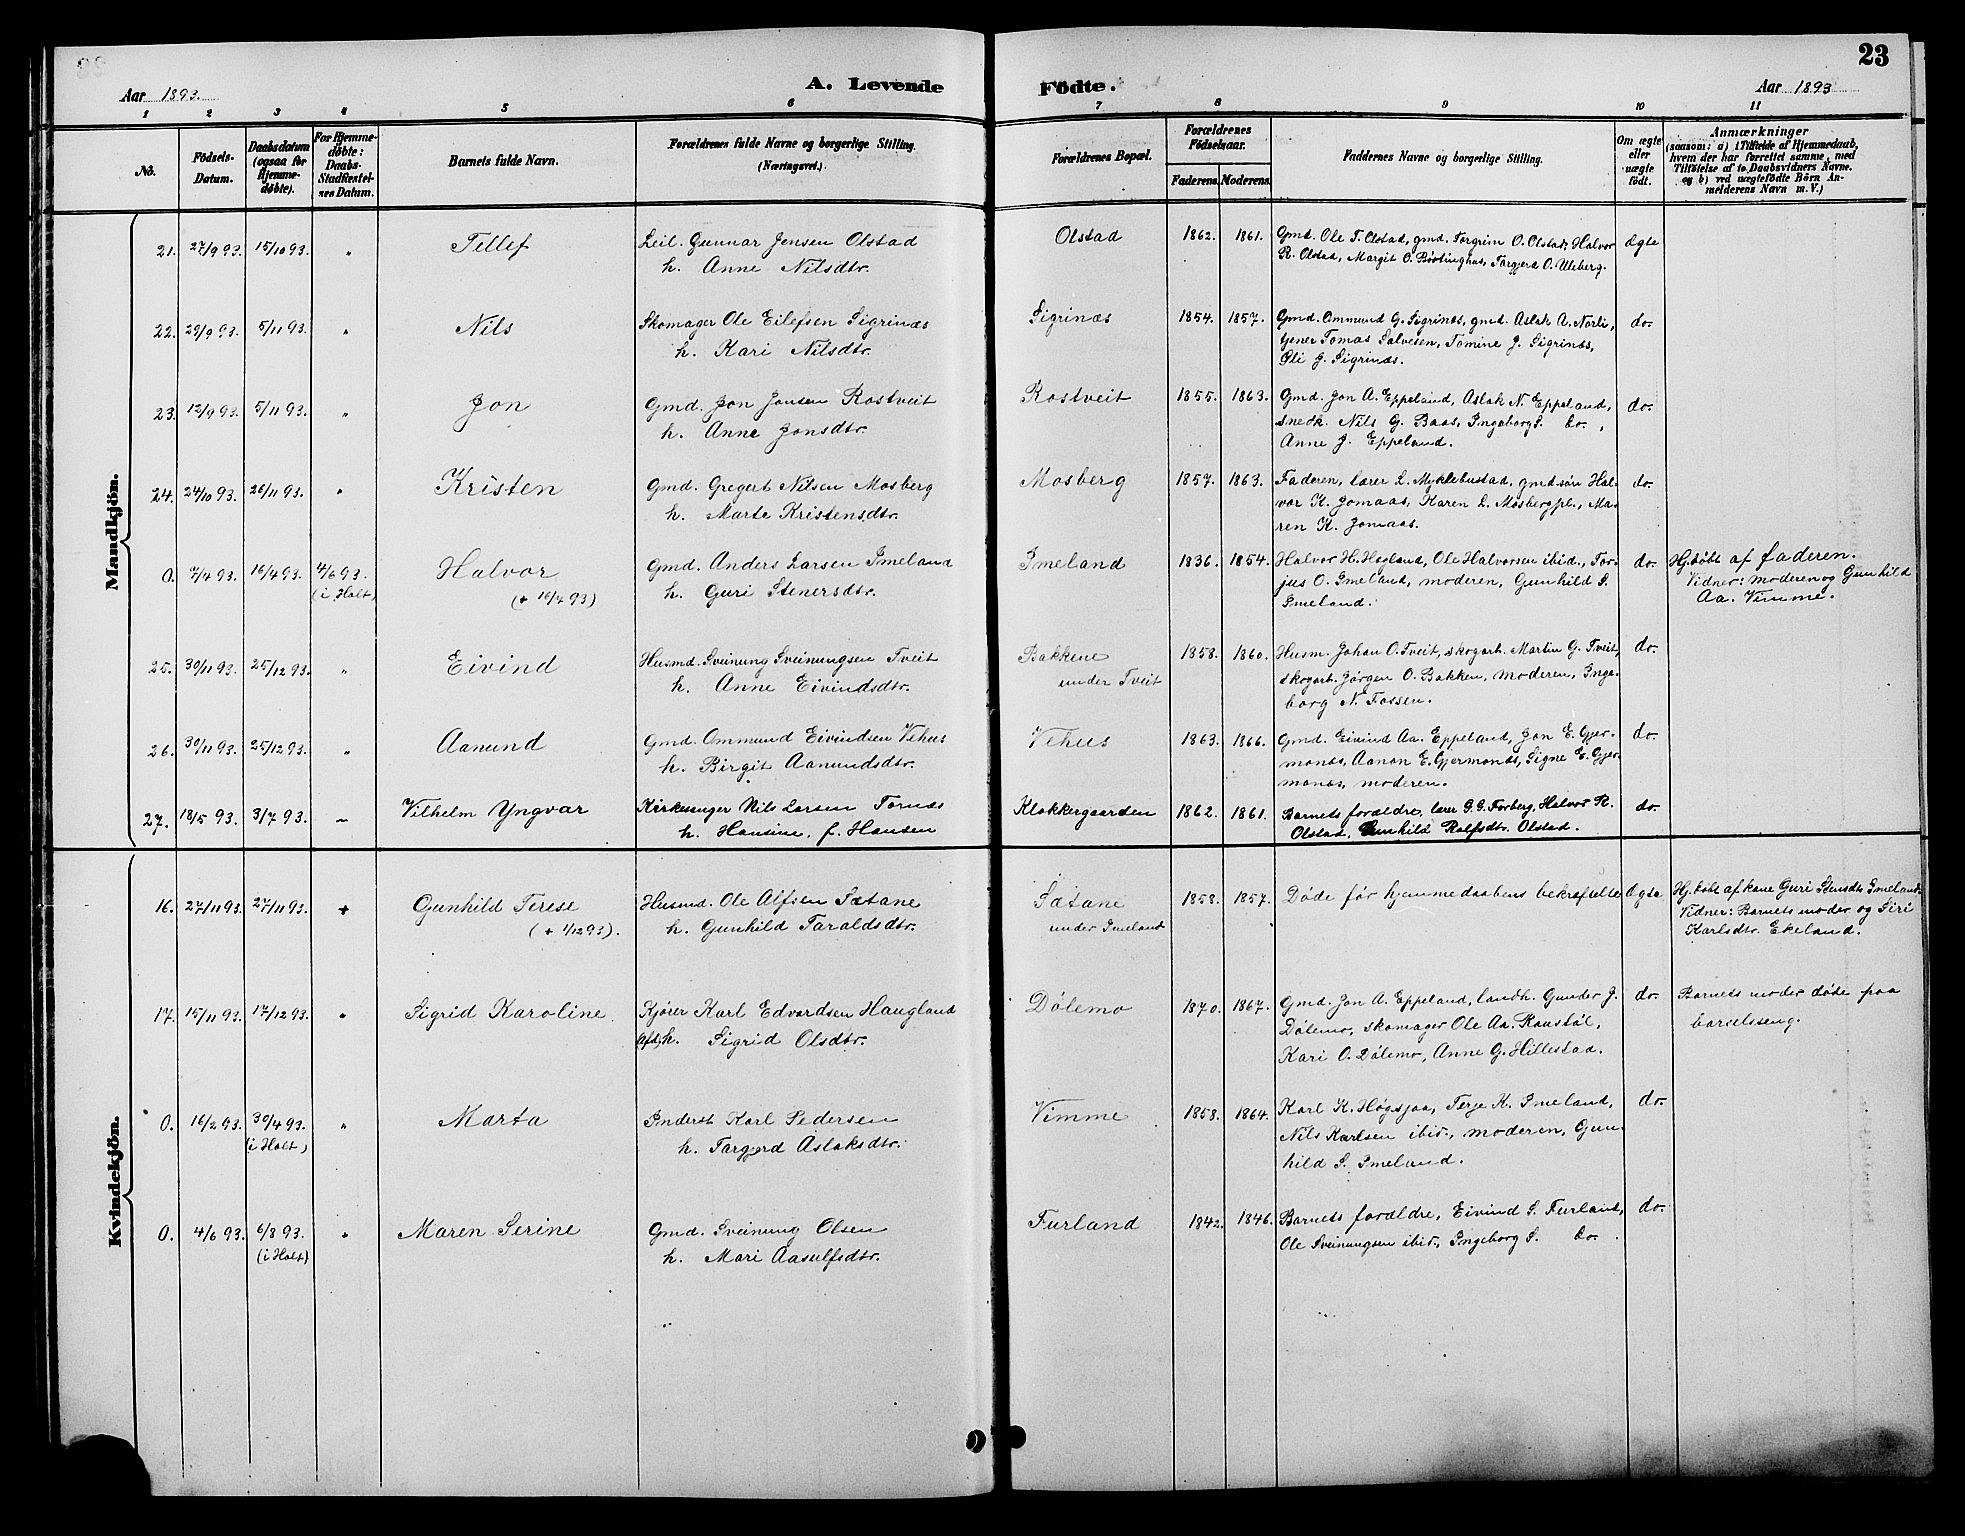 23
Aar 1893.
A. Levende Födte.
Aar 1893
1 2 3 4 5 6 7 8 9 10 11
No.
Födsels-Datum.
Daabsdatum (ogsaa for Hjemme-döbte).
For Hjemme-döbte: Daabs-Stadfæstel-ses Datum.
Barnets fulde Navn.
Forældrenes fulde Navne og borgerlige Stilling. (Næringsvei.)
Forældrenes Bopæl.
Forældrenes Födselsaar.
Faderens. Moderens.
Faddernes Navne og borgerlige Stilling.
Om ægte eller uægte födt.
Anmærkninger
(saasom: a) i Tilfælde af Hjemmedaab, hvem der har forrettet samme, med Tilföielse af to Daabsvidners Navne. og b) ved uægtefödte Börn An-melderens Navn m. V.)
Mandkjön.
21. 27/9 93. 15/10 93. " Tellef Leil. Gunnar Jensen Olstad Olstad 1862. 1861. Gmd. Ole T. Olstad, gmd. Torgrim O. Olstad, Halvor ægte
h. Anne Nilsdtr. R. Olstad, Margit O. Böstinghus, Torgjerd O. Uleberg.
22. 29/9 93. 5/11 93. " Nils Skomager Ole Eilefsen Sigrinæs Sigrinæs 1854. 1857. Gmd. Ommund G. Sigrinæs, gmd. Aslak A. Norli, do.
h. Kari Nilsdtr. tjener Tomas Salvesen, Tomine J. Sigrinæs,
Oli J. Sigrinæs.
23. 12/9 93. 5/11 93. " Jon Gmd. Jon Jonsen Rostveit Rostveit 1855. 1863. Gmd. Jon A. Eppeland, Aslak N. Eppeland, do.
h. Anne Jonsdtr. snedk. Nils G. Baas, Ingeborg S. do.,
Anne J. Eppeland.
24. 24/10 93. 26/11 93. " Kristen Gmd. Gregert Nilsen Mosberg Mosberg 1857. 1863. Faderen, lærer L. Myklebustad, gmdsön Hal- do.
h. Marte Kristensdtr. vor K. Jomaas, Karen L. Mosbergpl., Ma-
ren K. Jomaas.
0. 7/4 93. 16/4 93. 4/6 93. Halvor Gmd. Anders Larsen Imeland Imeland 1836. 1854. Halvor H. Hegland, Ole Halvorsen ibid., Tor- do. Hj.döbt af faderen.
(i Holt) (+ 16/4 93) h. Guri Stenersdtr. jus O. Imeland, moderen, Gunhild S. Vidner: moderen og Gunhild
Imeland. Aa. Vimme.
25. 30/11 93. 25/12 93. " Eivind Husmd. Sveinung Sveinungsen Tveit Bakkene 1858. 1860. Husm. Johan O. Tveit, skogarb. Martin G. Tveit, do.
h. Anne Eivindsdtr. under Tveit skogarb. Jörgen O. Bakken, moderen, Inge-
borg N. Fossen.
26. 30/11 93. 25/12 93. " Aanund Gmd. Ommund Eivindsen Vehus Vehus 1863. 1866. Gmd. Eivind Aa. Eppeland, Jon E. Gjer- do.
h. Birgit Aanundsdtr. monæs, Aanon E. Gjermonæs, Signe E. Gjer-
monæs, moderen.
27. 18/5 93. 3/7 93. – Vilhelm Yngvar Kirkesanger Nils Larsen Tornæs Klokkergaarden 1862. 1861. Barnets forældre, lærer G. G. Forberg, Halvor R. do.
h. Hansine, f. Hansen Olstad, Gunhild Rolfsdtr. Olstad.
Kvindekjön.
16. 27/11 93. 27/11 93. + Gunhild Terese Husmd. Ole Alfsen Sætane Sætane 1858. 1857. Döde för hjemmedaabens bekræftelse ægte Hj.döbt af kone Guri Stensdtr. Imeland.
(+ 1/12 93). h. Gunhild Taraldsdtr. under Imeland Vidner: Barnets moder og Siri
Karlsdtr. Ekeland.
17. 15/11 93. 17/12 93. " Sigrid Karoline Kjörer Karl Edvardsen Haugland Dölemo 1870. 1867. Gmd. Jon A. Eppeland, landh. Gunder J. do. Barnets moder döde paa
Afd. h. Sigrid Olsdtr. Dölemo, skomager Ole Aa. Ramstöl, barselsseng.
Kari O. Dölemo, Anne G. Hillestad.
0. 16/2 93. 30/4 93. " Marta Inderst Karl Pedersen Vimme 1858. 1864. Karl K. Högsjaa, Terje K. Imeland, do.
(i Holt) h. Torgjerd Aslaksdtr. Nils Karlsen ibid., moderen, Gun-
hild S. Imeland.
0. 4/6 93. 6/8 93. " Maren Serine Gmd. Sveinung Olsen Furland 1842. 1846. Barnets forældre, Eivind S. Furland, do.
(i Holt) h. Mari Aasulfsdtr. Ole Sveinungsen ibid., Ingeborg S. do.